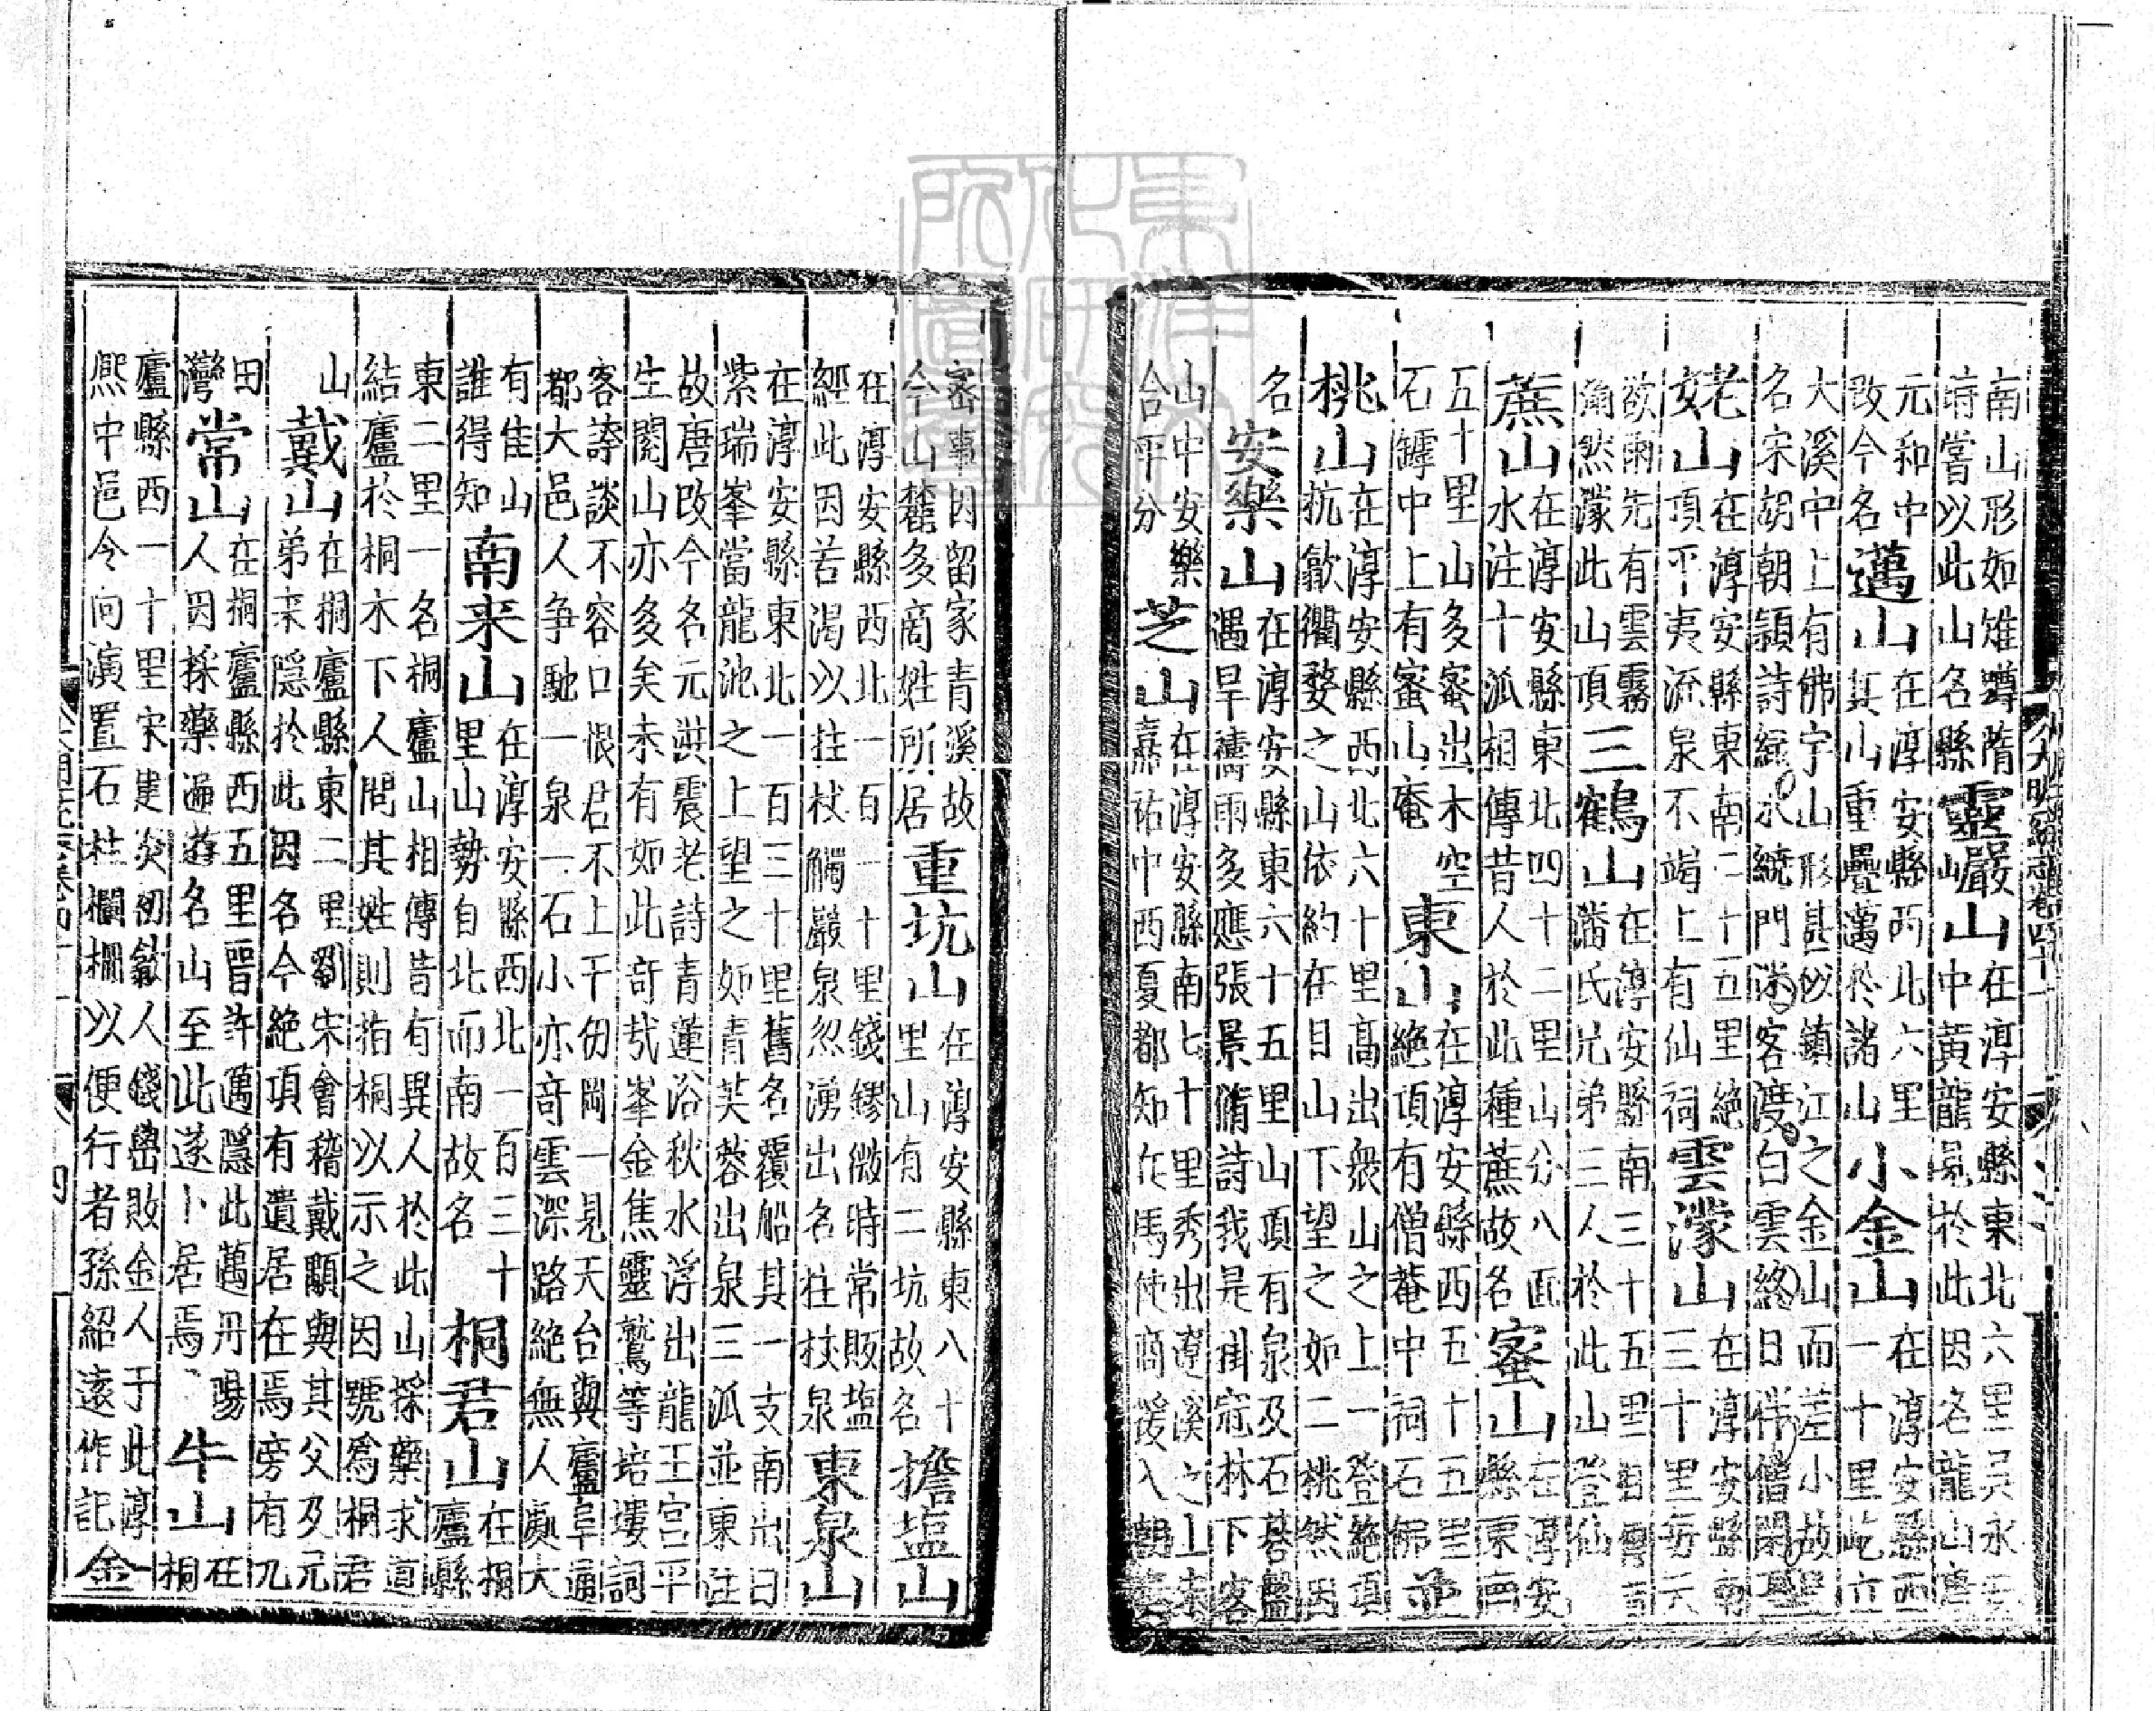 南山形如雉蹲蓨靈巖山在淳安縣東北六里吳永
時嘗以此山名縣中黃龍見於此因名龍山
元和中邁山在淳安縣西北六里小金山在淳安縣西
改今名其山重疊邁於諸山一十里屹立
大溪中上有佛宇山形甚似鎮江之金山而差小故
名宋胡朝穎詩水繞門客渡白雲終日伴僧閑
姥山在淳安縣東南二十五里絕雲濛山在淳安縣南
山頂平夷流泉不竭上有仙祠三十里每
欲雨先有雲霧三鶴山在淳安縣南三十五里
滃然濛此山頂潘氏兄弟三人於此山登仙
蔗山在淳安縣東北四十二里山分八面蜜山在淳安
水注十派相傳昔人於此種蔗故名縣東南
五十里山多蜜出木空東山在淳安縣西五十五里並
石罅中上有蜜山庵絕頂有僧菴中祠石佛
桃山在淳安縣西北六十里高出衆山之上一登絕頂
杭歙衢婺之山依約在目山下望之如二桃然因
名安樂山在淳安縣東六十五里山頂有泉及石碁盤
遇旱禱雨多應張景脩詩我是掛冠林下客
山中安樂芝山在淳安縣南七十里秀出遼溪之上
合平分嘉祐中西夏都知
密事因留家青溪故重坑山在淳安縣東八十擔塩山
今山麓多商姓所居里山有二坑故名
在淳安縣西北一百一十里錢鏐微時常販塩東泉山
經此因苦渴以拄杖觸巖泉忽湧出名拄杖泉
在淳安縣東北一百三十里舊名覆船其一支南出曰
紫瑞峯當龍池之上望之如青芙蓉出泉三派並東注
故唐改今名元洪震老詩青蓮浴秋水浮出龍王宮平
生閱山亦多矣未有如此奇哉峯金焦靈鷲等培塿詞
客誇談不容口恨君不上千仞岡一見天台與廬阜通
都大邑人争馳一泉一石小亦竒雲深路絕無人處大
有佳山南来山在淳安縣西北一百三十桐君山在桐
誰得知里山勢自北而南故名廬縣
東二里一名桐廬山相傳昔有異人於此山採藥求道
結廬於桐木下人問其姓則指桐以示之因號爲桐君
山戴山在桐廬縣東二里劉宋會稽戴顒與其父及元
弟来隱於此因名今絶項有遺居在焉旁有九
田常山在桐廬縣西五里晉許邁隱此邁丹陽牛山在
灣人因採藥遍遊名山至此遂卜居焉桐
廬縣西一十里宋建炎初歙人錢𡺸敗金人于此淳
熈中邑令向演置石柱欄柵以便行者孫紹遠作記金